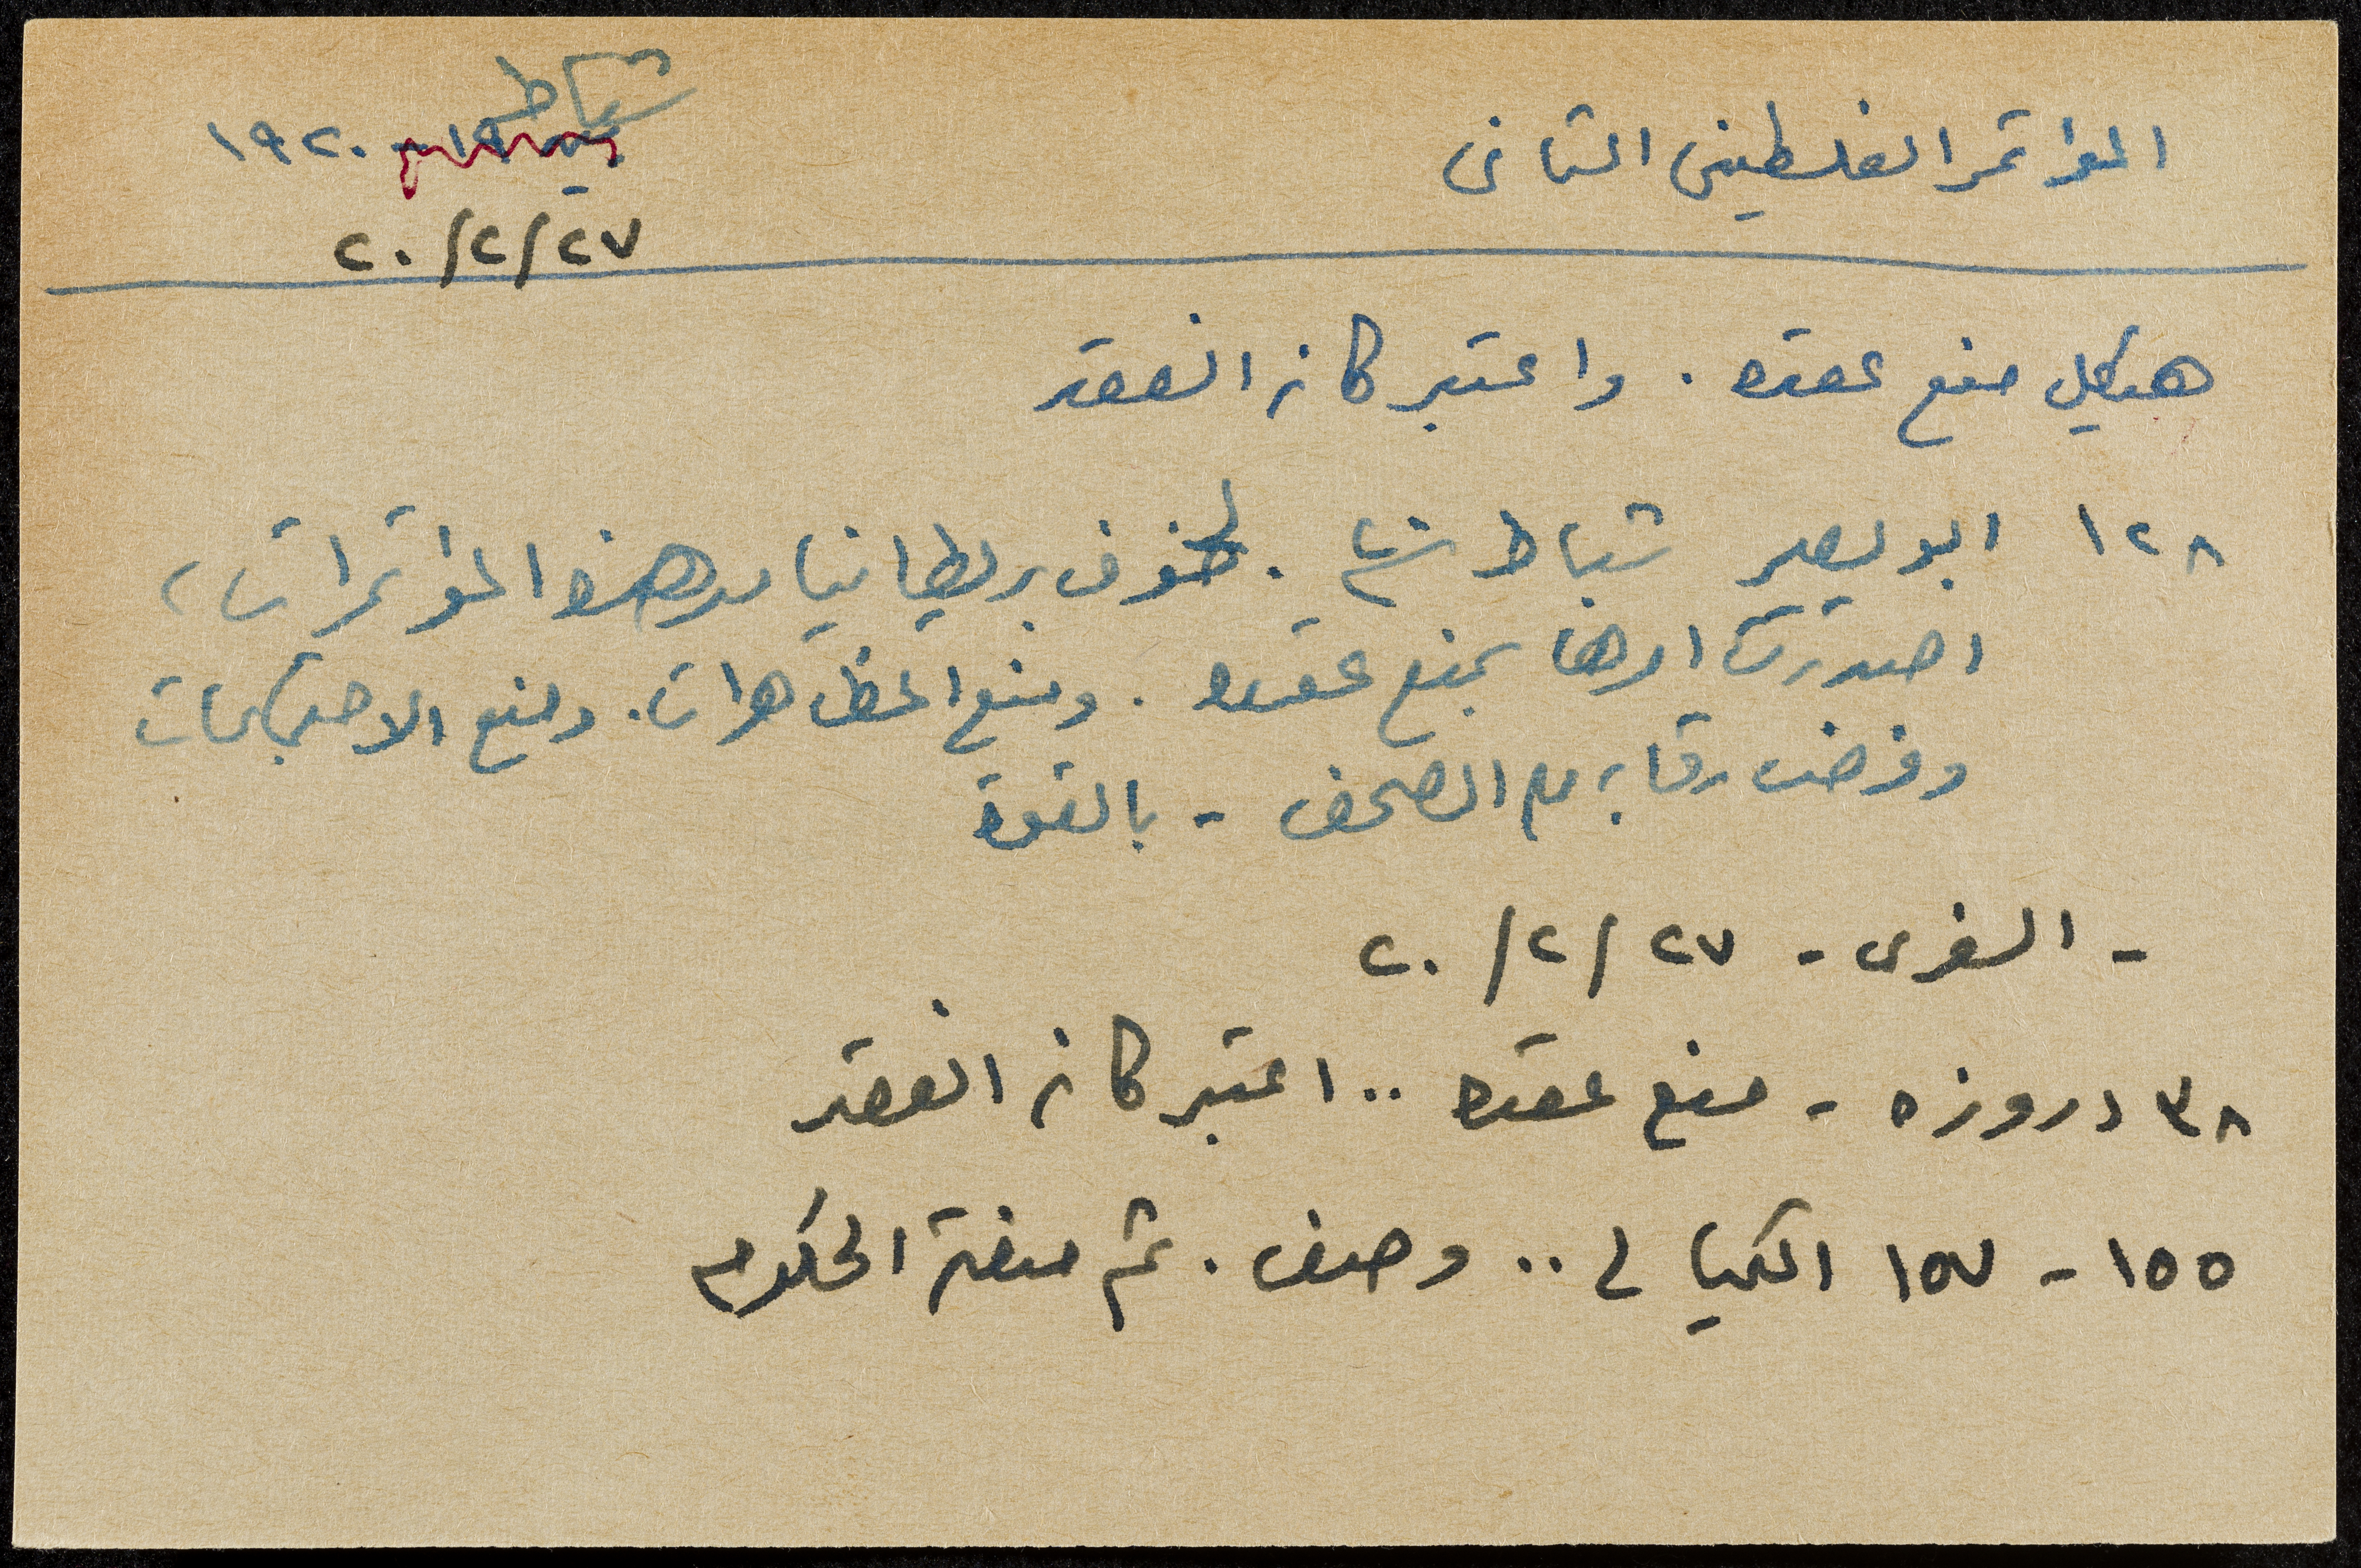 المؤتمر الفلسطيني الثاني
شباط
١٩٢٠
٢٧/٢/٢٠
هيكل منع عقده . واعتبر كانه انعقد
١٢٨ ابو يصير شباط ٢٠ . لخوف بريطانيا من هذه المؤتمرات ،
اصدرت امرها بمنع عقده . ومنع المظاهرات . ومنع الاحتجاجات
وفرضت رقابة على الصحف - بالقوة
- السفرى - ٢٧/٢/٢٠
٣٨ دروزه - منع عقده .. اعتبر كانه انعقد
١٥٥ - ١٥٧ الكيالي .. وصف . ثم منعته الحكومه